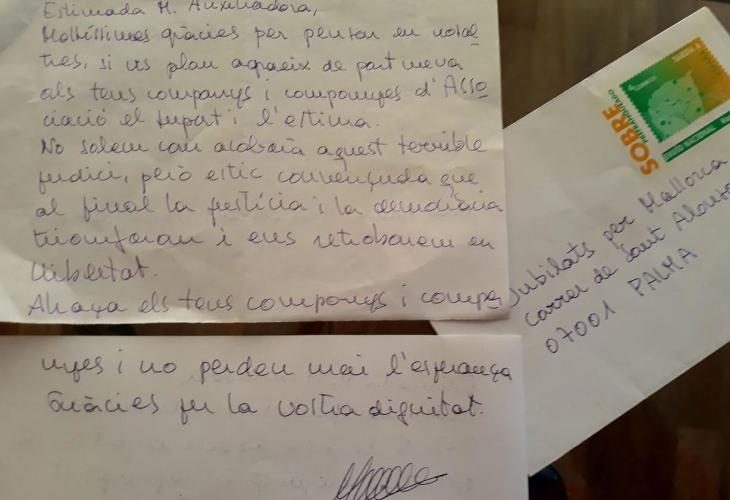 Estimada M. Auxiliadora,
Moltíssimes gràcies per pensar en nosal
tres, si us plau agraeix de part meva
als teus companys i companyes d'Asso
ciació el suport i l'estima.
No sabem com acabarà aquest terrible
judici, però estic convençuda que
al final la justícia i la democràcia
triomfaran i ens retrobarem en
llibertat.
Abraça els teus companys i compa
nyes i no perdeu mai l'esperança
Gràcies per la vostra dignitat.
SOBRE
PREFRANQUEADO
Jubilats per Mallorca
Carrer de Sant Alonso
07001 PALMA